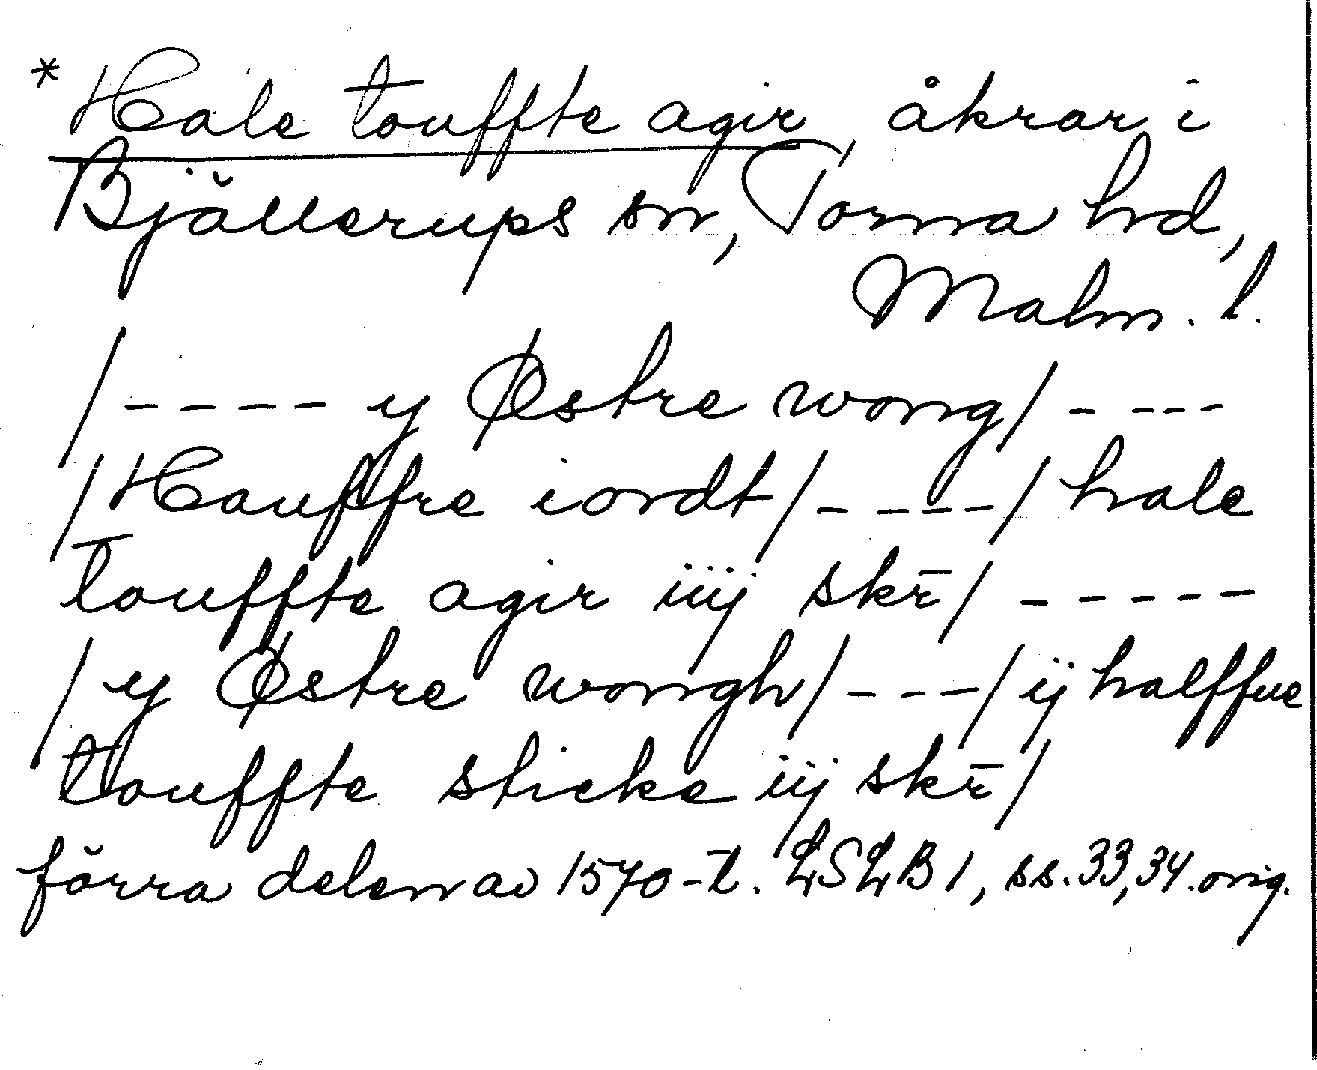 *Hale touffte agir, åkrar i
Bjällerups sn, Torna hd,
Malm. l.
/---- y Østre wong/ ----
/Hauffre iordt/----/ hale
touffte agir iiij skr̄/ -----
/y Østre wongh/---/ ij halffue
touffte sticke iij skr̄/
förra delen av 1570-t. LSLB 1, ss. 33, 34. orig.